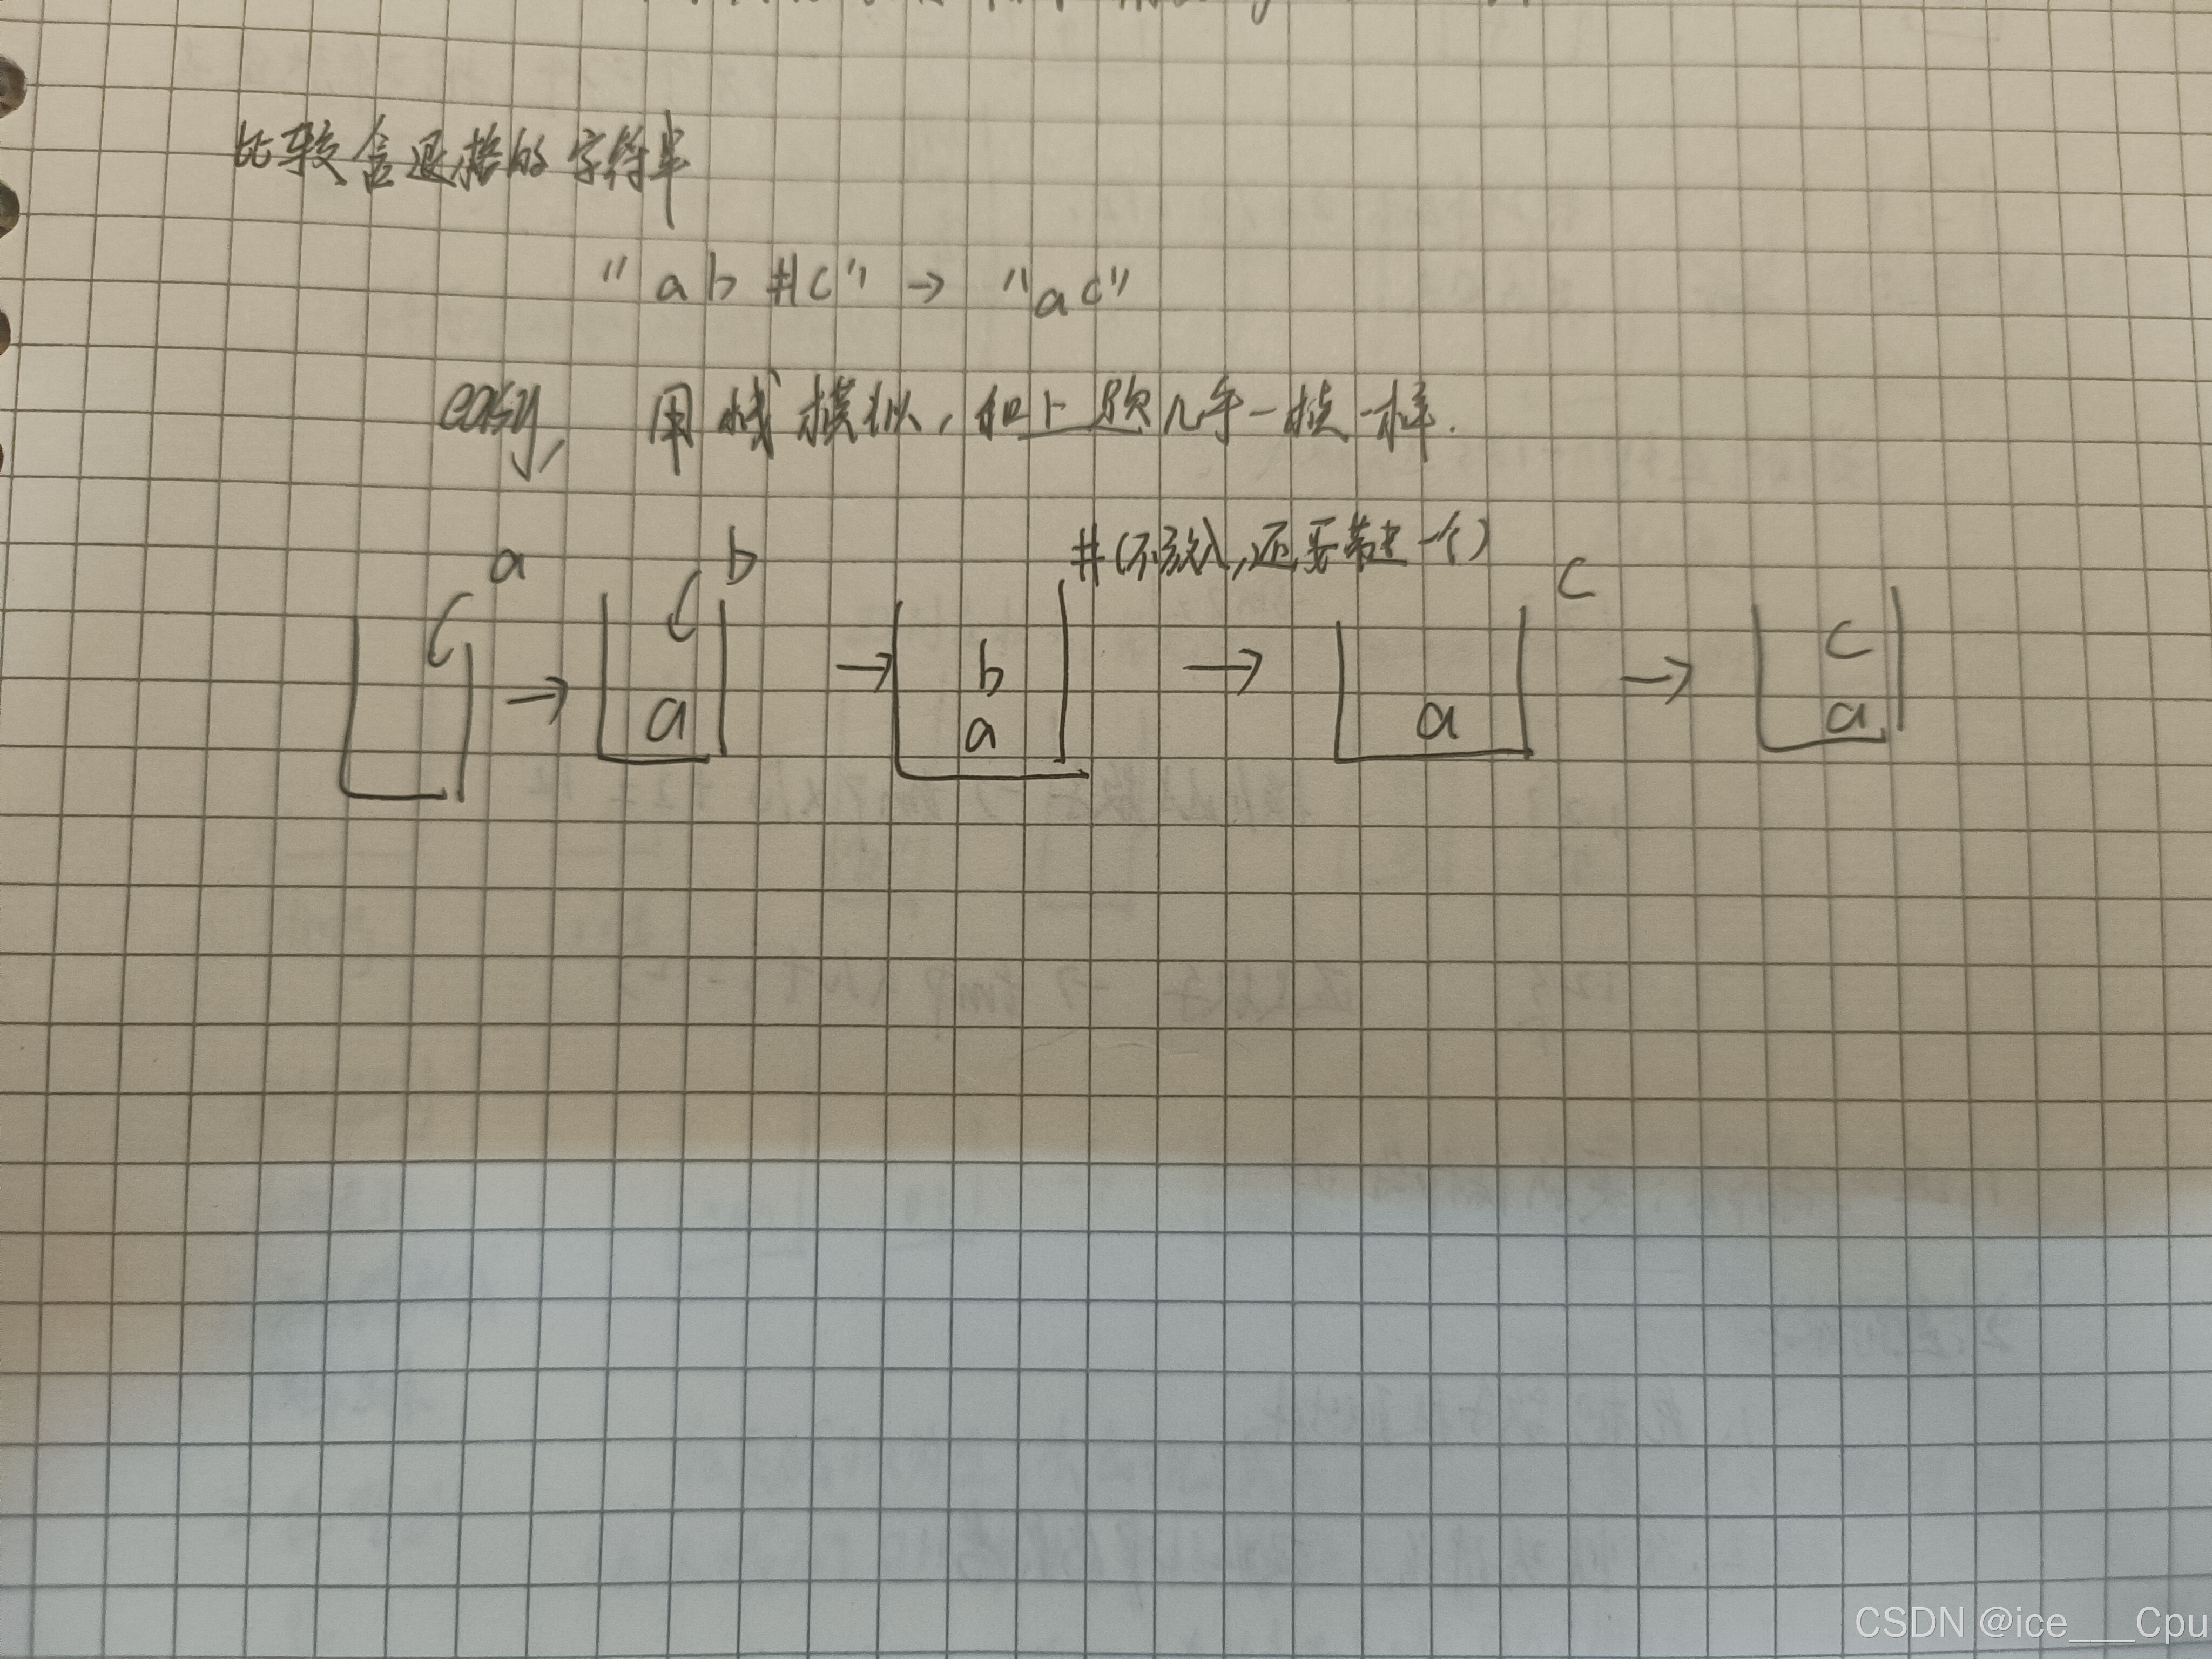 比较含退格的字符串
"ab#c" → "ac"
easy, 用栈模拟,和上题几乎一模一样.
a b #(不放入,还要带走一个) c
→ a → b a → a → c a
CSDN @ice___Cpu